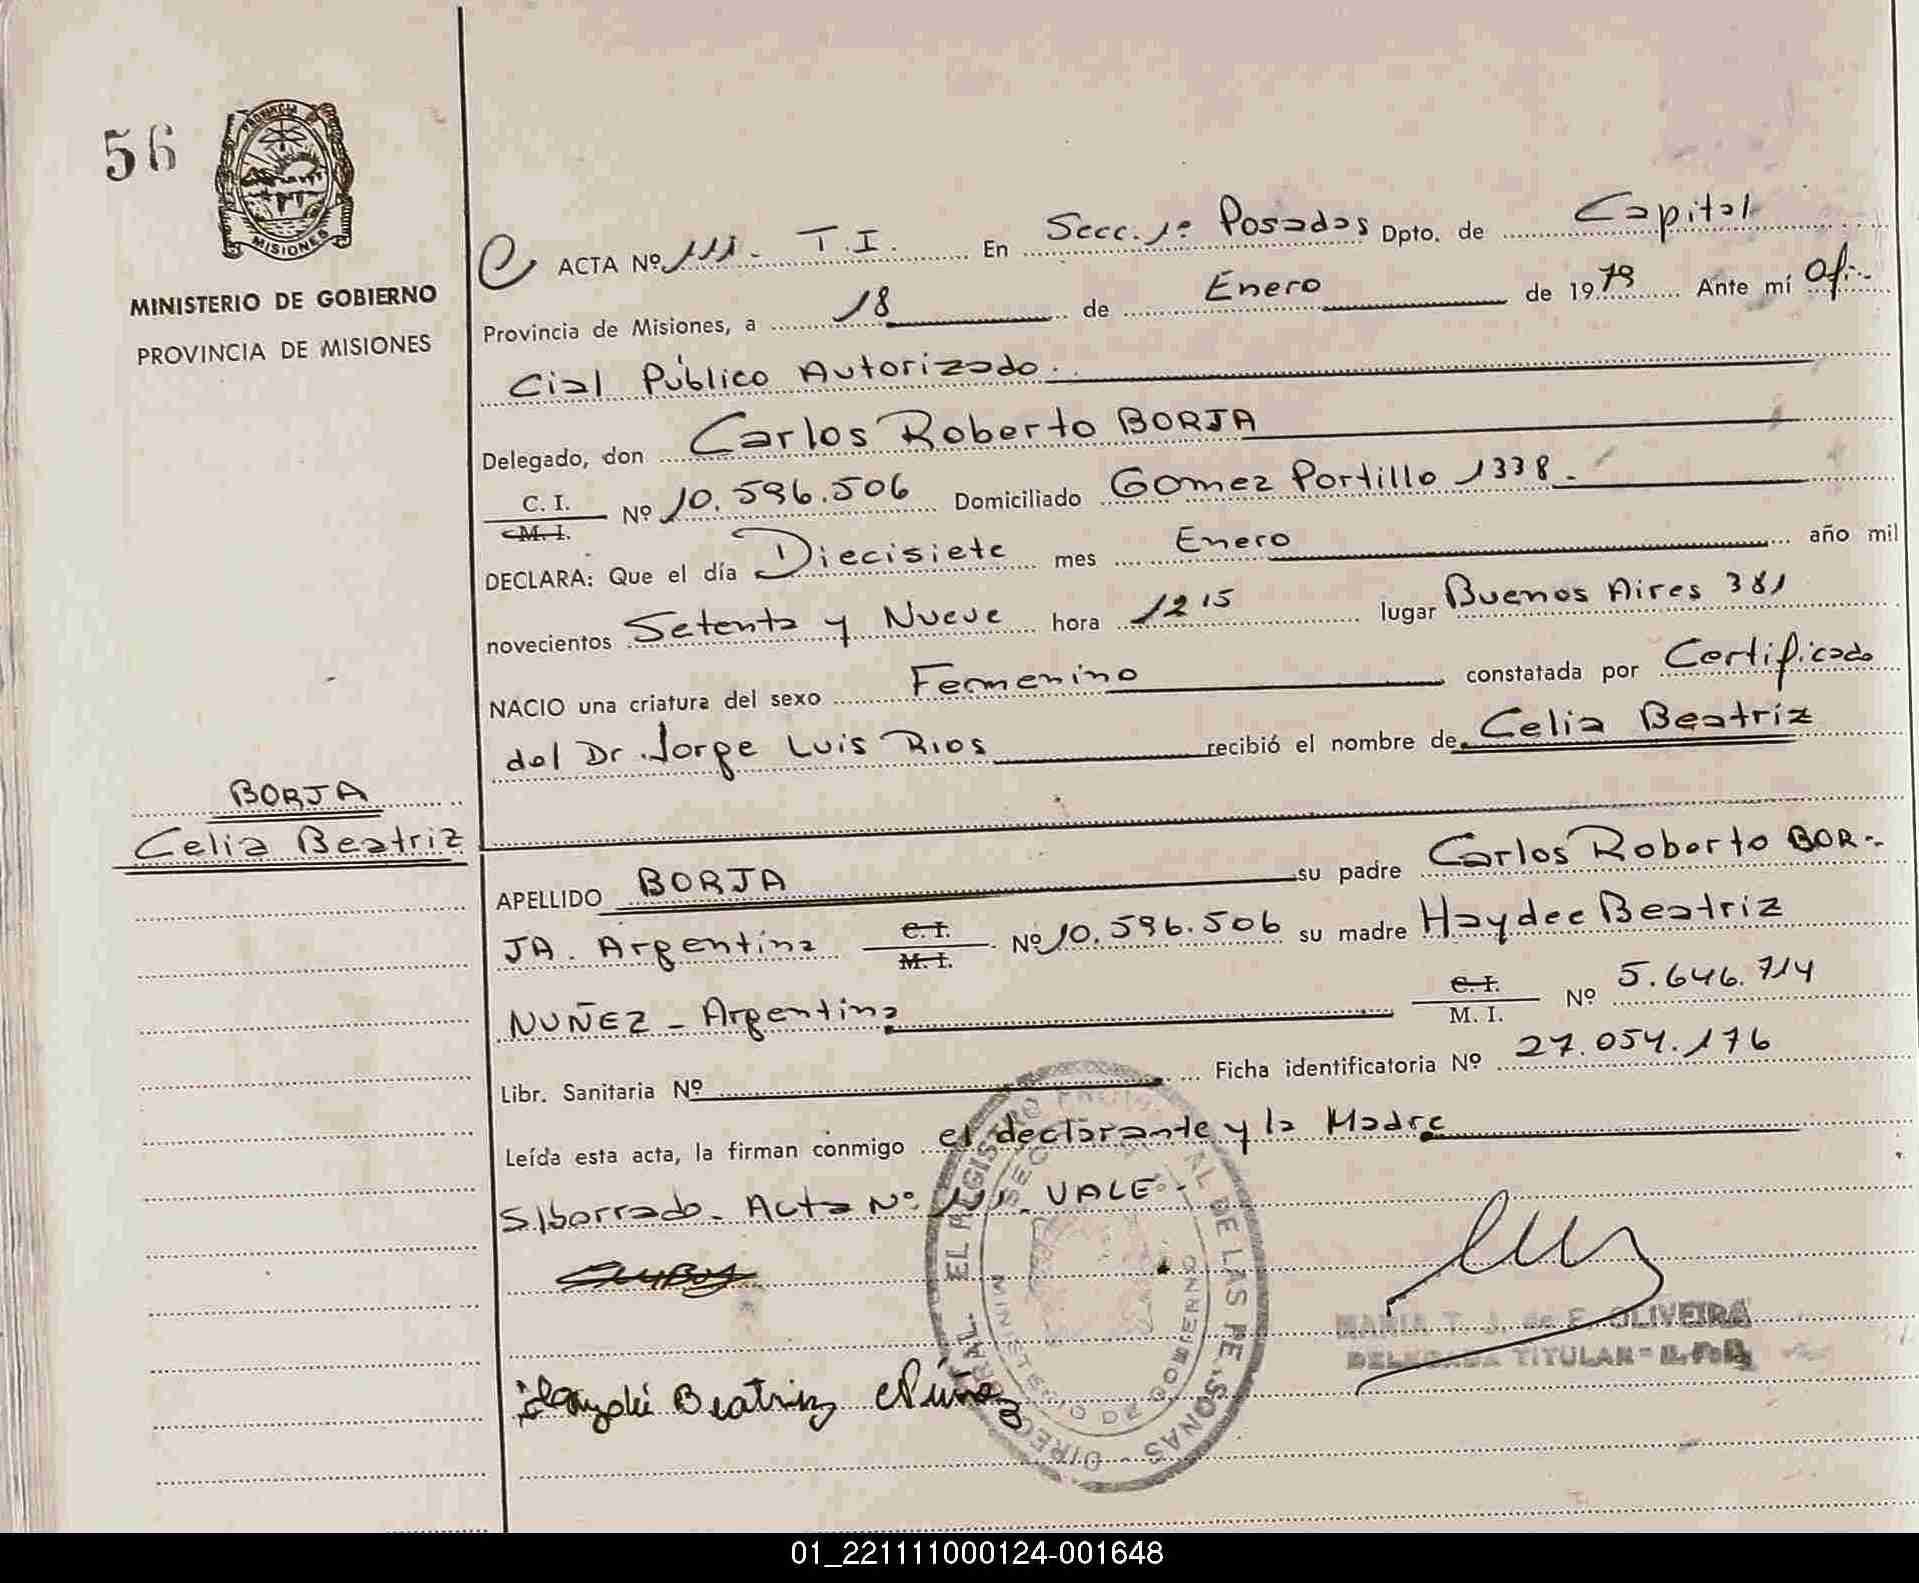 56
PROVINCIA
MISIONES
MINISTERIO DE GOBIERNO
PROVINCIA DE MISIONES
ACTA Nº 111 - T.I. En Secc. 1º Posadas Dpto. de Capital
Provincia de Misiones, a 18 de Enero de 1979 Ante mí Ofi-
cial Público Autorizado.
Delegado, don Carlos Roberto BORJA
C. I.
M. I. Nº 10.596.506 Domiciliado Gomez Portillo 1338.-
DECLARA: Que el día Diecisiete mes Enero año mil
novecientos Setenta y Nueve hora 12 15 lugar Buenos Aires 381
NACIO una criatura del sexo Femenino constatada por Certificado
del Dr. Jorge Luis Rios recibió el nombre de Celia Beatriz
BORJA
Celia Beatriz
APELLIDO BORJA su padre Carlos Roberto BOR-
JA. Argentina C. I. M. I. Nº 10.596.506 su madre Haydee Beatriz
NUÑEZ - Argentina C. I. M. I. Nº 5.646.714
Libr. Sanitaria Nº Ficha identificatoria Nº 27.054.176
Leída esta acta, la firman conmigo el declarante y la Madre
S/borrado - Acta Nº 111. VALE.-
MARIA T. J. de E. OLIVEIRA
DELEGADA TITULAR
Haydeé Beatriz Núñez
DIRECCION GRAL. EL REGISTRO PROVINCIAL DE LAS PERSONAS
MINISTERIO DE GOBIERNO
01_221111000124-001648